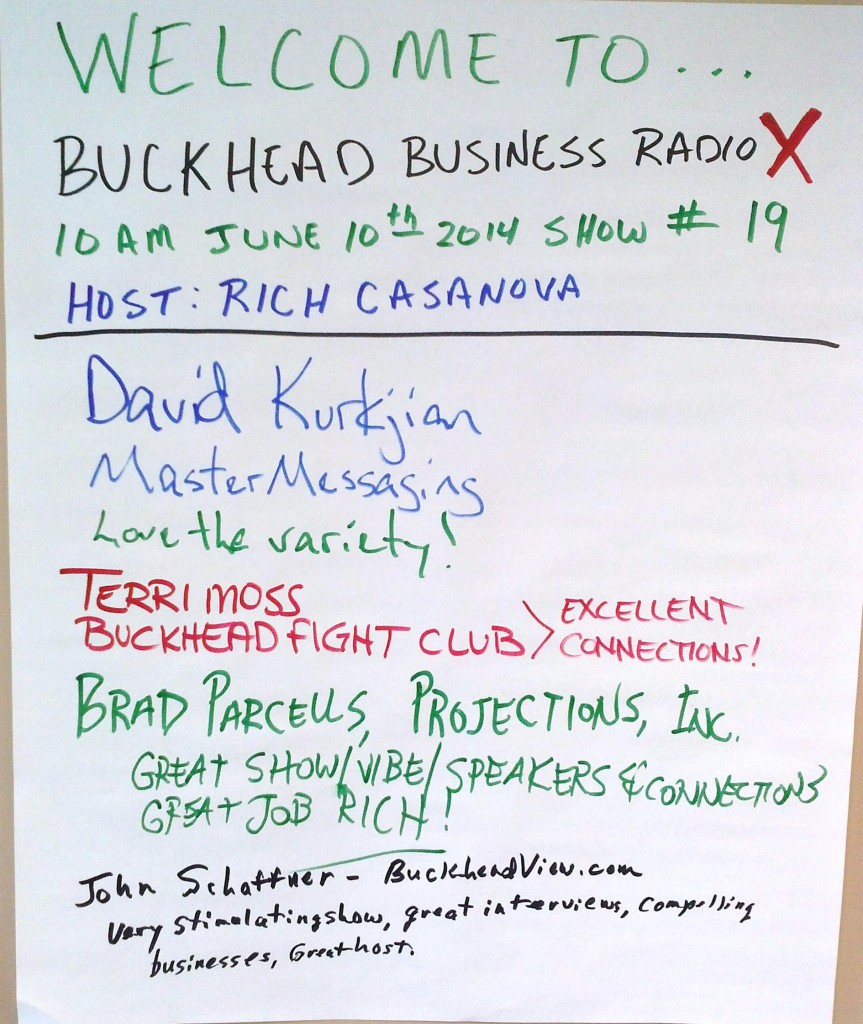 WELCOME TO...
BUCKHEAD BUSINESS RADIO X
10 AM JUNE 10th 2014 SHOW # 19
HOST: RICH CASANOVA
David Kurkjian
Master Messaging
Love the variety!
TERRI MOSS
BUCKHEAD FIGHT CLUB > EXCELLENT CONNECTIONS!
BRAD PARCELLS, PROJECTIONS, INC.
GREAT SHOW/VIBE/SPEAKERS & CONNECTIONS
GREAT JOB RICH!
John Schaffner - BuckheadView.com
Very stimulating show, great interviews, compelling
businesses, Great host.